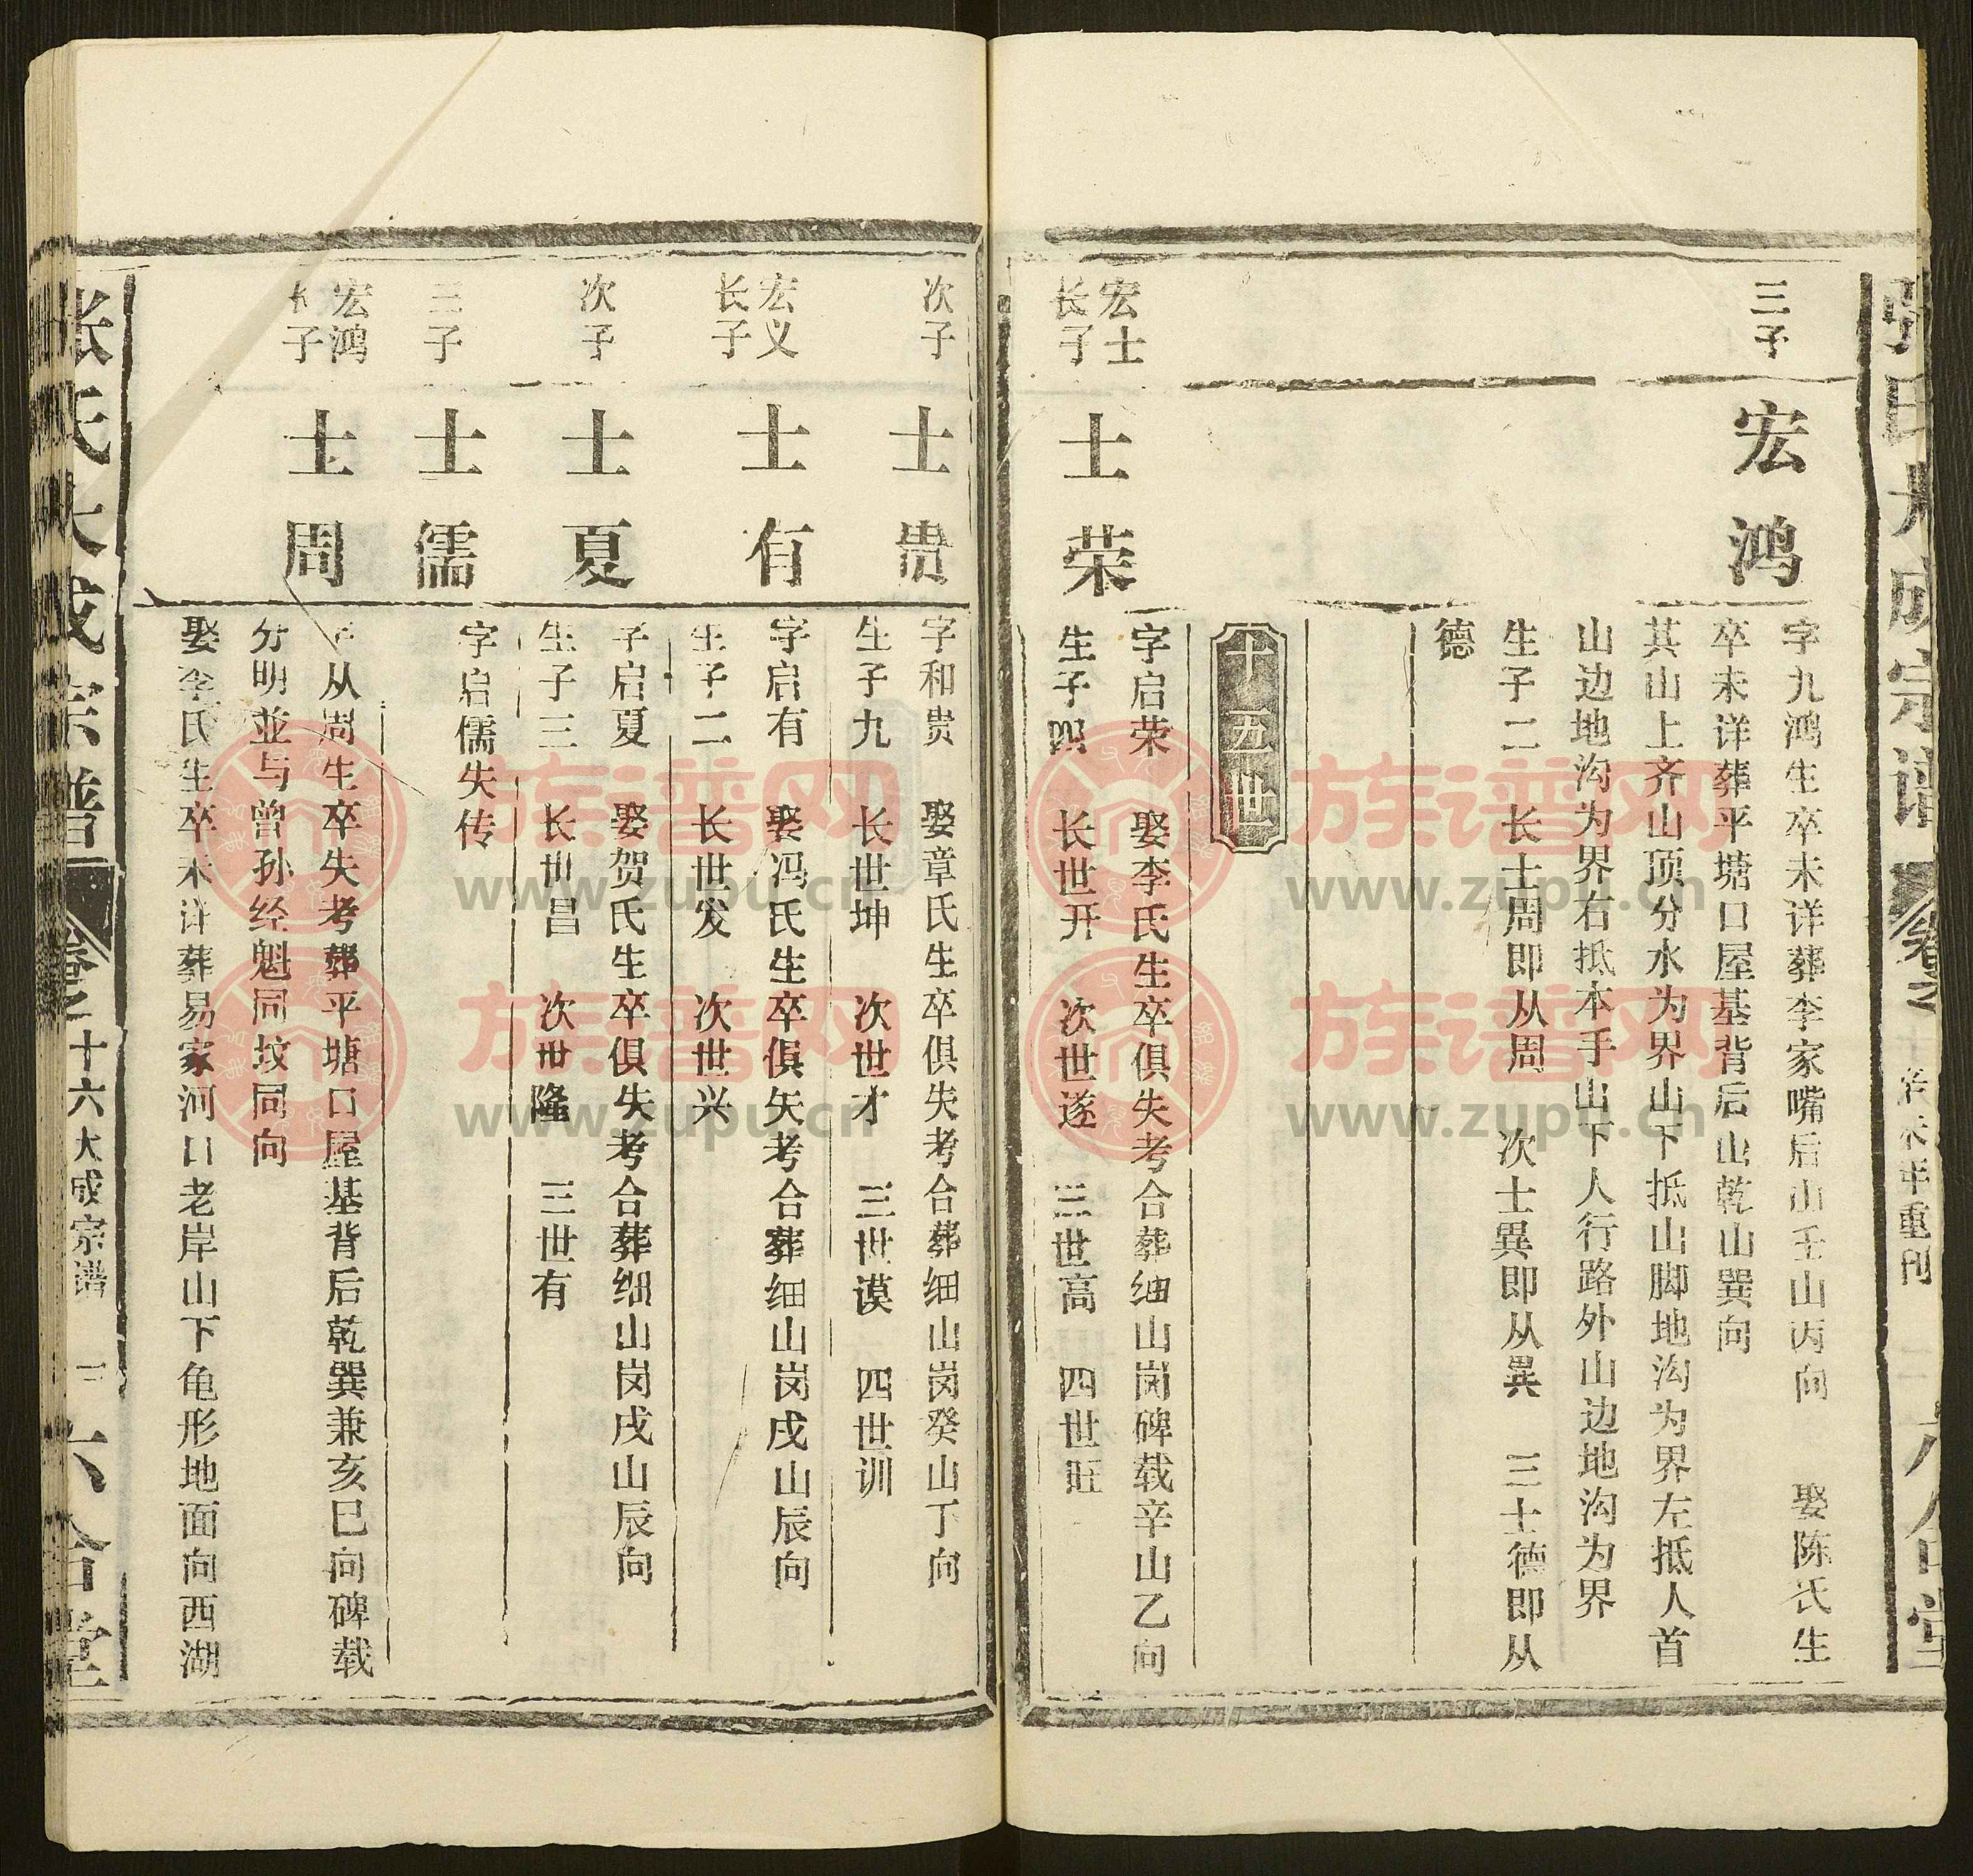 张氏大成宗谱
卷之
辛未年重刊
二
六合堂
三子
宏鸿
字九鸿生卒未详葬李家嘴后山壬山丙向 娶陈氏生
卒未详葬平塘口屋基背后山乾山巽向
其山上齐山顶分水为界山下抵山脚地沟为界左抵人首
山边地沟为界右抵本手山下人行路外山边地沟为界
生子二 长士周即从周 次士異即从異 三士德即从
德
十五世
宏士
长子
士荣
字启荣 娶李氏生卒俱失考合葬细山岗碑载辛山乙向
生子四 长世开 次世遂 三世高 四世旺
次子
士贵
字和贵 娶章氏生卒俱失考合葬细山岗癸山丁向
生子九 长世坤 次世才 三世谟 四世训
宏义
长子
士有
字启有 娶冯氏生卒俱失考合葬细山岗戌山辰向
生子二 长世发 次世兴
次子
士夏
字启夏 娶贺氏生卒俱失考合葬细山岗戌山辰向
生子三 长世昌 次世隆 三世有
三子
士儒
字启儒失传
宏鸿
长子
士周
字从周生卒失考葬平塘口屋基背后乾巽兼亥巳向碑载
分明並与曾孙经魁同坟同向
娶李氏生卒未详葬易家河口老岸山下龟形地面向西湖
张氏大成宗谱
卷之十六大成宗谱
三
六合堂
族谱网
www.zupu.cn
族谱网
www.zupu.cn
族谱网
www.zupu.cn
族谱网
www.zupu.cn